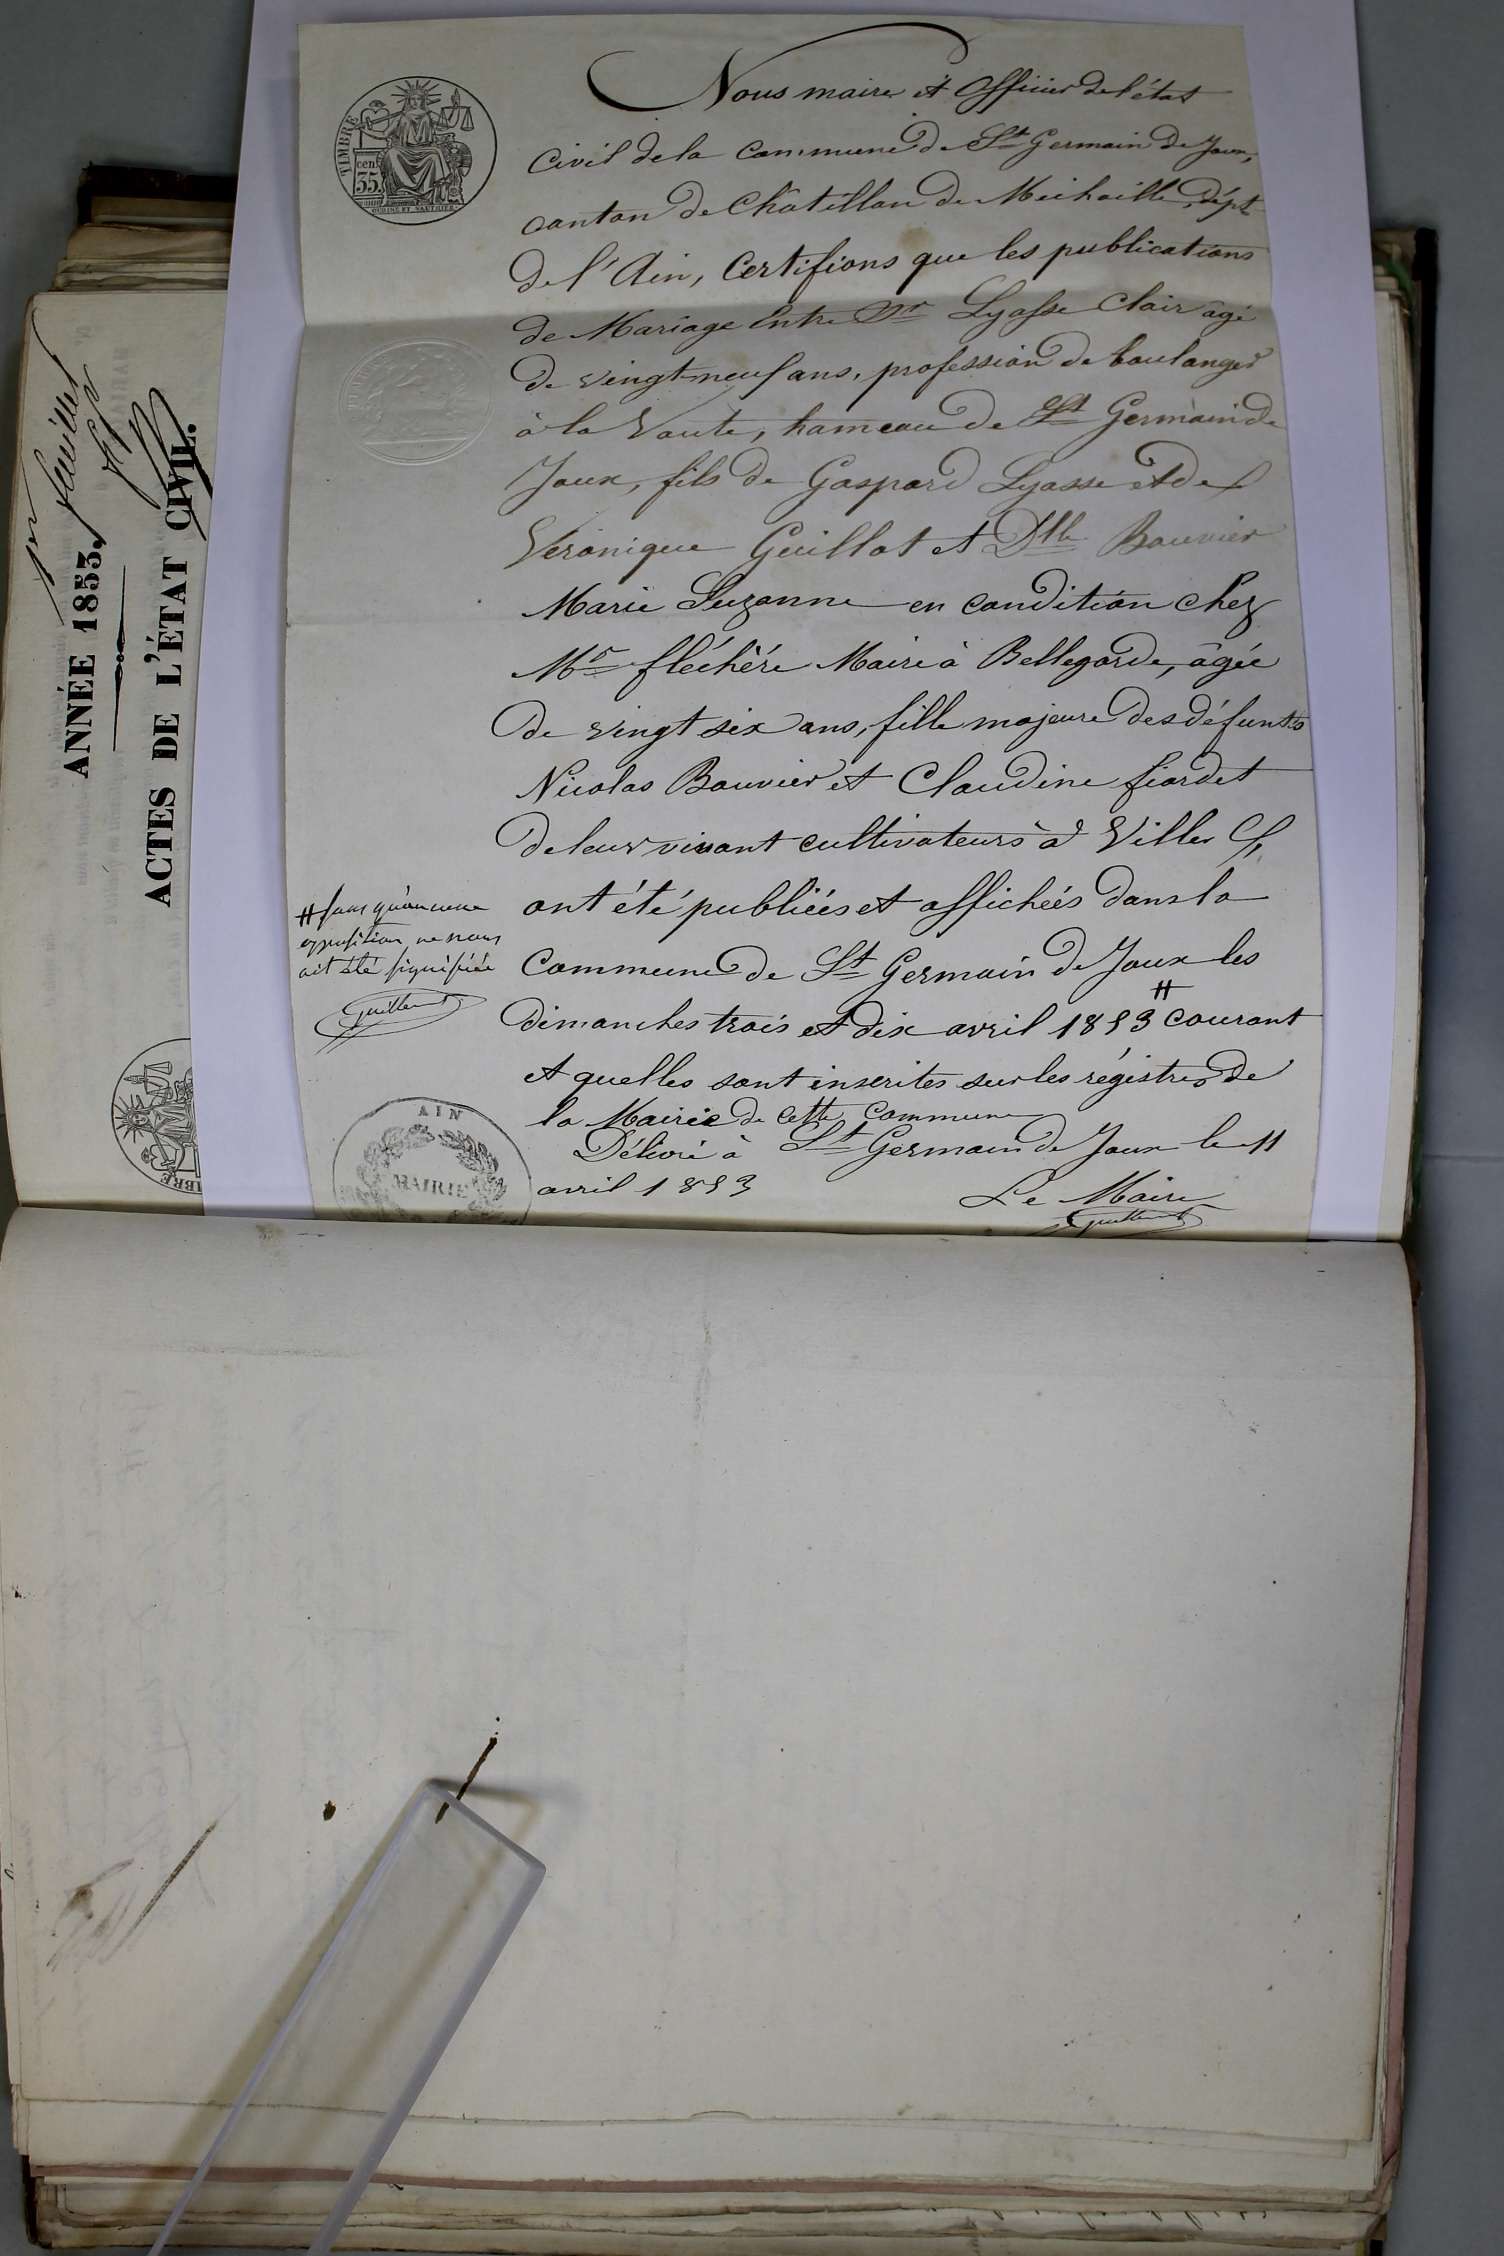 Nous maire et officier de l'état
Civil de la Commune de St Germain de Joux,
canton de Châtillon de Michaille, dépt
de l'Ain, Certifions que les publications
de Mariage Entre Sr Lyasse Clair agé
de vingt neuf ans, profession de boulanger
à la Voute, hameau de St Germain de
Joux, fils de Gaspard Lyasse et de
Véronique Guillot et Dlle Bouvier
Marie Suzanne en condition chez
Mr fléchère Maire à Bellegarde, âgée
de vingt six ans, fille majeure des défunts
Nicolas Bouvier et Claudine fiardet
de leur vivant cultivateurs à Villes
ont été publiées et affichées dans la
Commune de St Germain de Joux les
dimanches trois et dix avril 1853 # courant
et quelles sont inscrites sur les régistres de
la Mairie de cette Commune
Délivré à St Germain de Joux le 11
avril 1853
Le Maire
Guillermet
# sans qu'aucune
opposition ne nous
ait été signifiée
Guillermet
TIMBRE
35 cen.
AIN
MAIRIE
ANNÉE 1853.
ACTES DE L'ÉTAT CIVIL.
feuillet